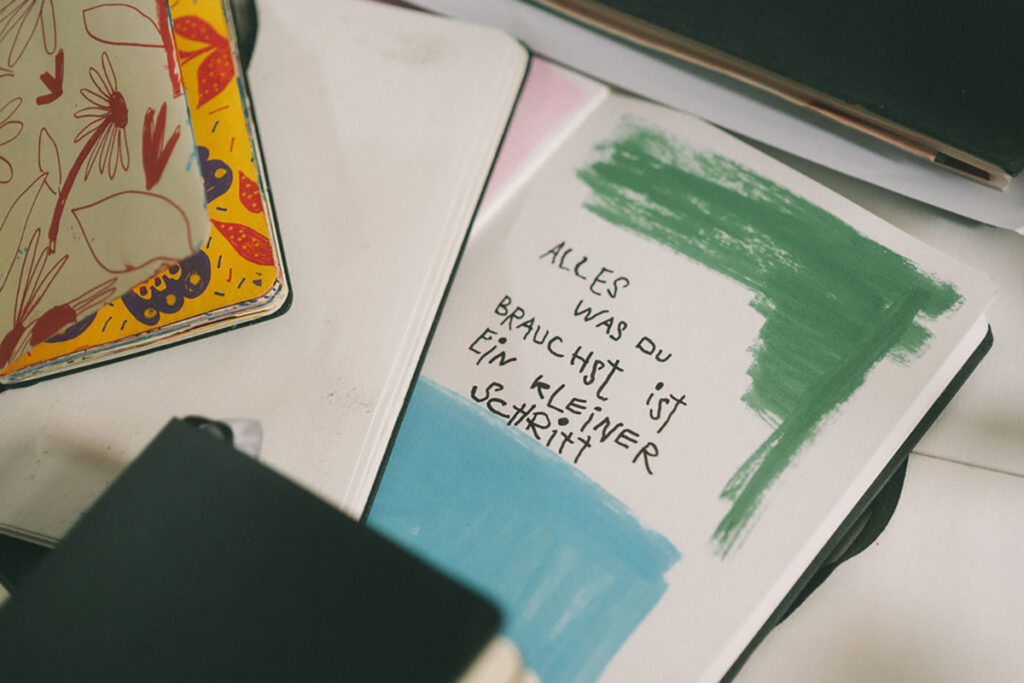 ALLES
WAS DU
BRAUCHST iST
EiN KLEiNER
SCHRiTT